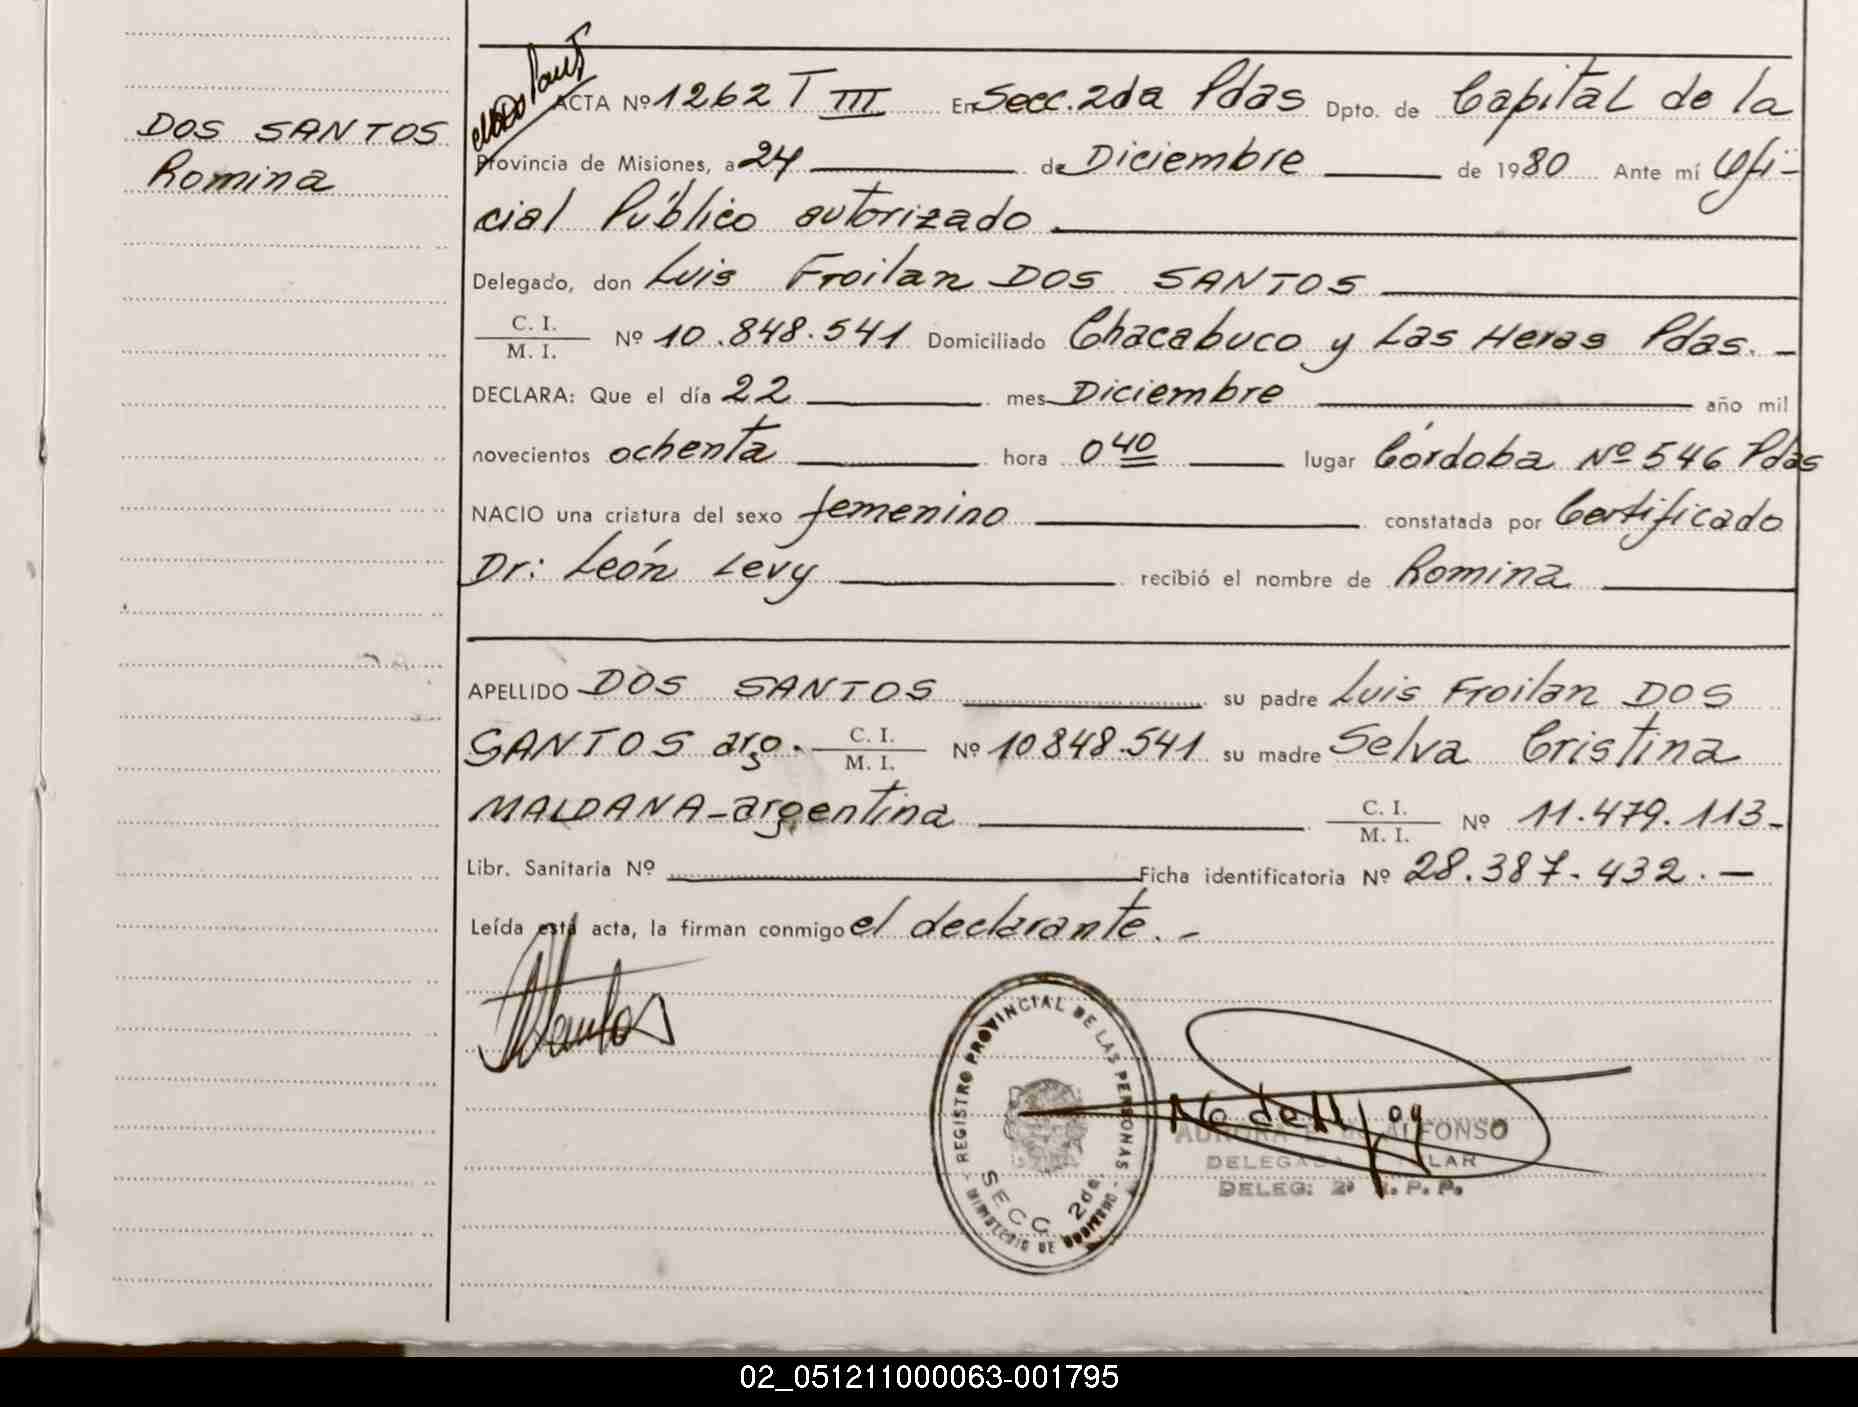 DOS SANTOS
Romina
ACTA Nº 1262 T III En Secc. 2da Pdas Dpto. de Capital de la
Provincia de Misiones, a 24 de Diciembre de 1980 Ante mí Ofi-
cial Público autorizado
Delegado, don Luis Froilan DOS SANTOS
C. I.
M. I. Nº 10.848.541 Domiciliado Chacabuco y Las Heras Pdas. -
DECLARA: Que el día 22 mes Diciembre año mil
novecientos ochenta hora 0 40 lugar Córdoba Nº 546 Pdas
NACIO una criatura del sexo femenino constatada por Certificado
Dr: León Levy recibió el nombre de Romina
APELLIDO DOS SANTOS su padre Luis Froilan DOS
SANTOS arg. C. I.
M. I. Nº 10848.541 su madre Selva Cristina
MALDANA - argentina C. I.
M. I. Nº 11.479.113-
Libr. Sanitaria Nº Ficha identificatoria Nº 28.387.432. -
Leída esta acta, la firman conmigo el declarante. -
REGISTRO PROVINCIAL DE LAS PERSONAS
SECC 2da
MINISTERIO DE GOBIERNO
AURORA ALFONSO
DELEG: 2ª R. P. P.
02_051211000063-001795